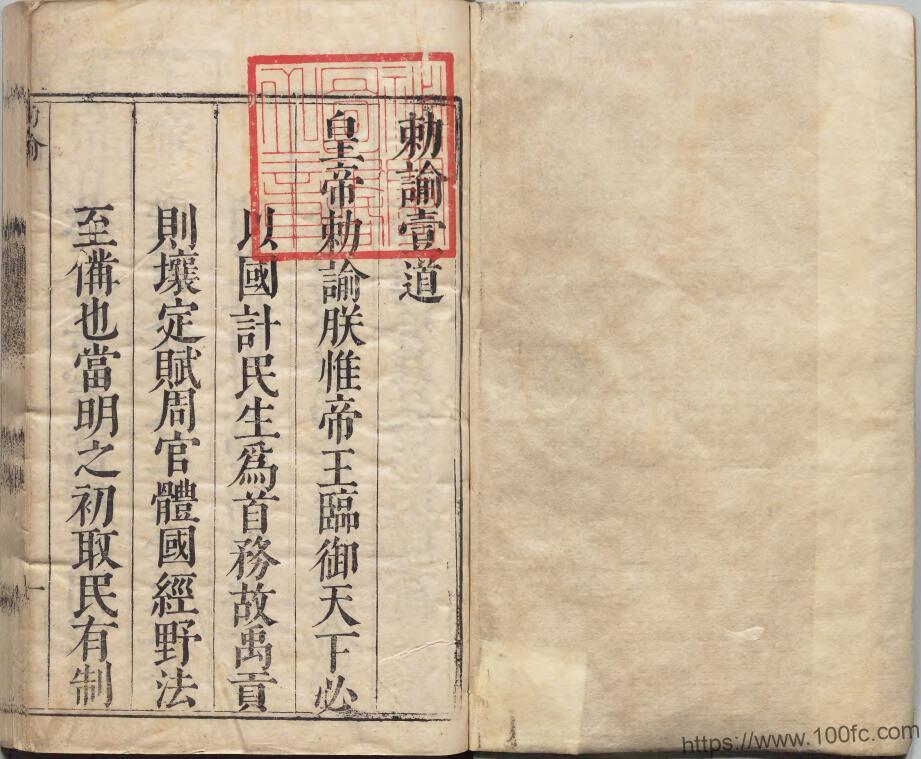 勅諭壹道
皇帝勅諭朕惟帝王臨御天下必
以國計民生爲首務故禹貢
則壤定賦周官體國經野法
至備也當明之初取民有制
https://www.100fc.com